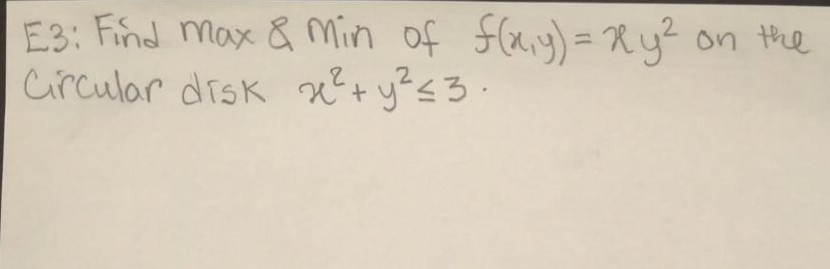 E3: Find max & Min of f(x,y) = xy² on the
Circular disk x² + y² ≤ 3.